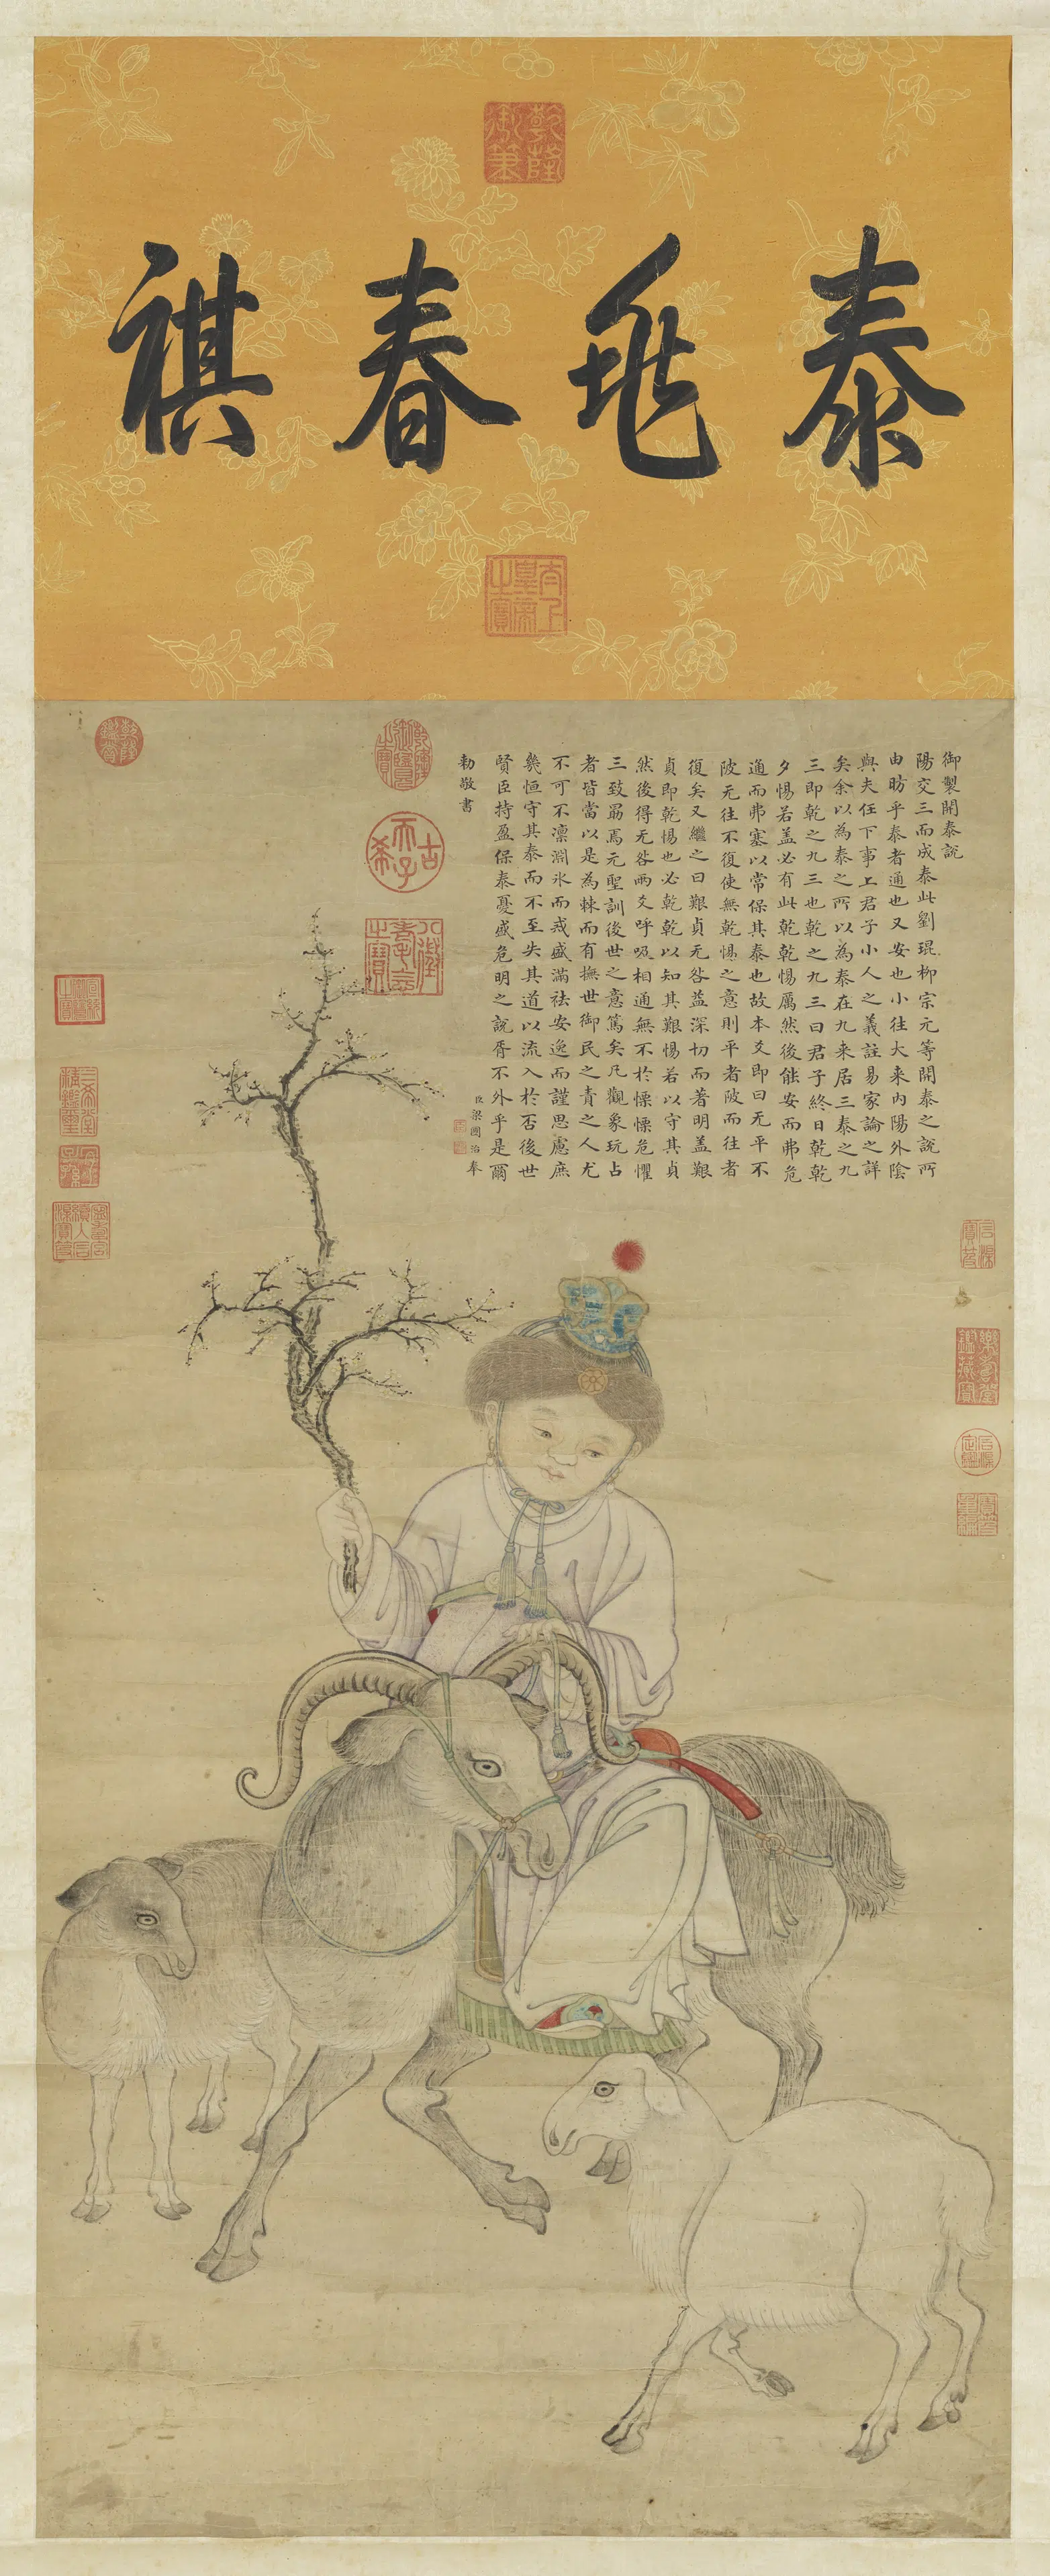 泰兆春祺
乾隆御筆
太上皇帝之寶
御製開泰說
陽交三而成泰此劉琨柳宗元等開泰之說所
由昉乎泰者通也又安也小往大来內陽外陰
與夫任下事上君子小人之義註易家論之詳
矣余以為泰之所以為泰在九来居三泰之九
三即乾之九三也乾之九三曰君子終日乾乾
夕惕若盖必有此乾乾惕厲然後能安而弗危
通而弗塞以常保其泰也故本爻即曰无平不
陂无往不復使無乾惕之意則平者陂而往者
復矣又繼之曰艱貞无咎益深切而著明盖艱
貞即乾惕也必乾乾以知其艱惕若以守其貞
然後得无咎兩爻呼吸相通無不於慄慄危懼
三致勗焉元聖訓後世之意篤矣凡觀象玩占
者皆當以是為棘而有撫世御民之責之人尤
不可不凛淵氷而戒盛滿祛安逸而謹思慮庶
幾恒守其泰而不至失其道以流入於否後世
賢臣持盈保泰憂盛危明之說胥不外乎是爾
臣梁國治奉
勅敬書
乾隆御覽之寶
古希天子
八徵耄念之寶
乾隆鑑賞
三希堂精鑑璽
宜子孫
樂善堂鑑藏寶
石渠寶笈
石渠定鑑
寶笈重編